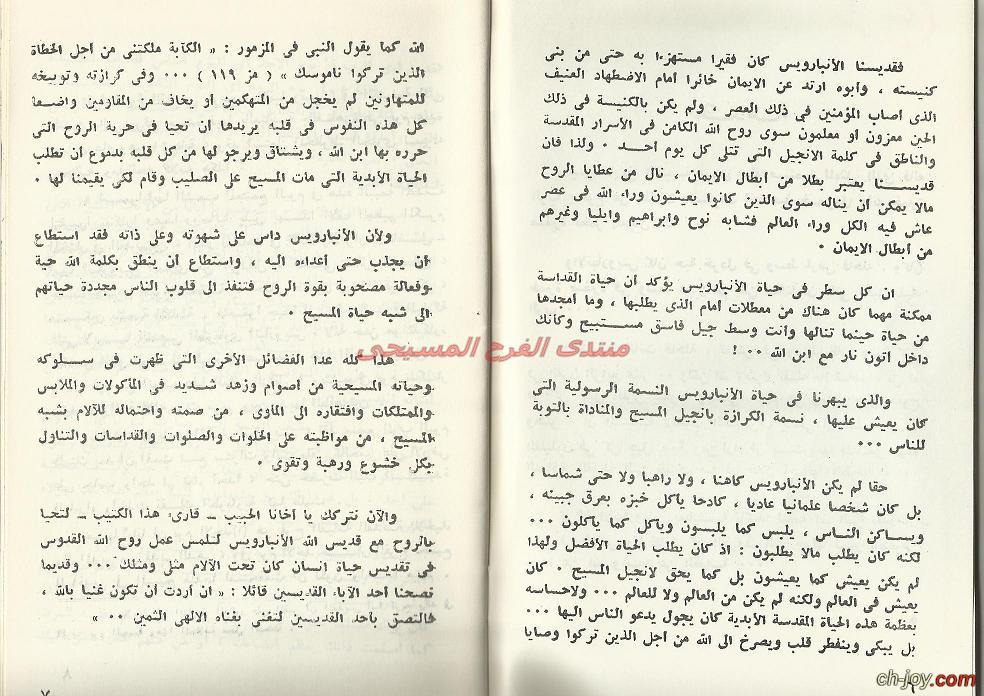 فقديسنا الأنبارويس كان فقيرا مستهزءا به حتى من بنى
كنيسته ، وأبوه ارتد عن الايمان خائرا أمام الاضطهاد العنيف
الذى أصاب المؤمنين فى ذلك العصر ، ولم يكن بالكنيسة فى ذلك
الحين معزون أو معلمون سوى روح الله الكامن فى الأسرار المقدسة
والناطق فى كلمة الانجيل التى تتلى كل يوم أحد . ولذا فان
قديسنا يعتبر بطلا من أبطال الايمان ، نال من عطايا الروح
مالا يمكن أن يناله سوى الذين كانوا يعيشون وراء الله فى عصر
عاش فيه الكل وراء العالم فشابه نوح وابراهيم وايليا وغيرهم
من أبطال الايمان .
ان كل سطر فى حياة الأنبارويس يؤكد أن حياة القداسة
ممكنة مهما كان هناك من معطلات أمام الذى يطلبها ، وما أمجدها
من حياة حينما تنالها وأنت وسط جيل فاسق مستبيح وكأنك
داخل أتون نار مع ابن الله ٠٠ !
والذى يبهرنا فى حياة الأنبارويس النسمة الرسولية التى
كان يعيش عليها ، نسمة الكرازة بانجيل المسيح والمناداة بالتوبة
للناس ٠٠٠
حقا لم يكن الأنبارويس كاهنا ، ولا راهبا ولا حتى شماسا ،
بل كان شخصا علمانيا عاديا ، كادحا يأكل خبزه بعرق جبينه ،
ويساكن الناس ، يلبس كما يلبسون ويأكل كما يأكلون ٠٠٠
لكنه كان يطلب مالا يطلبون : اذ كان يطلب الحياة الأفضل ولهذا
لم يكن يعيش كما يعيشون بل كما يحق لانجيل المسيح . كان
يعيش فى العالم ولكنه لم يكن من العالم ولا للعالم ٠٠٠ ولاحساسه
بعظمة هذه الحياة المقدسة الأبدية كان يجول يدعو الناس اليها ٠٠٠
بل يبكى وينفطر قلب ويصرخ الى الله من أجل الذين تركوا وصايا
الله كما يقول النبى فى المزمور : « الكآبة ملكتنى من أجل الخطاة
الذين تركوا ناموسك » ( مز ١١٩ ) ٠٠٠ وفى كرازته وتوبيخه
للمتهاونين لم يخجل من المتهكمين أو يخاف من المقاومين واضعا
كل هذه النفوس فى قلبه يريدها أن تحيا فى حرية الروح التى
حرره بها ابن الله ، ويشتاق ويرجو لها من كل قلبه بدموع أن تطلب
الحياة الأبدية التى مات المسيح على الصليب وقام لكى يقيمنا لها .
ولأن الأنبارويس داس على شهوته وعلى ذاته فقد استطاع
أن يجذب حتى أعداءه اليه ، واستطاع أن ينطق بكلمة الله حية
وفعالة مصحوبة بقوة الروح فتنفذ الى قلوب الناس مجددة حياتهم
الى شبه حياة المسيح .
هذا كله عدا الفضائل الأخرى التى ظهرت فى سلوكه
وحياته المسيحية من أصوام وزهد شديد فى المأكولات والملابس
والممتلكات وافتقاره الى المأوى ، من صمته واحتماله للآلام بشبه
المسيح ، من مواظبته على الخلوات والصلوات والقداسات والتناول
بكل خشوع ورهبة وتقوى .
والآن نتركك يا أخانا الحبيب ــ قارىء هذا الكتيب ــ لتحيا
بالروح مع قديس الله الأنبارويس لتلمس عمل روح الله القدوس
فى تقديس حياة انسان كان تحت الآلام مثلى ومثلك ٠٠٠ وقديما
نصحنا أحد الآباء القديسين قائلا : « ان أردت أن تكون غنيا بالله ،
فالتصق بأحد القديسين لتغنى بغناه الالهى الثمين ٠٠ »
منتدى الفرح المسيحى
ch-joy.com